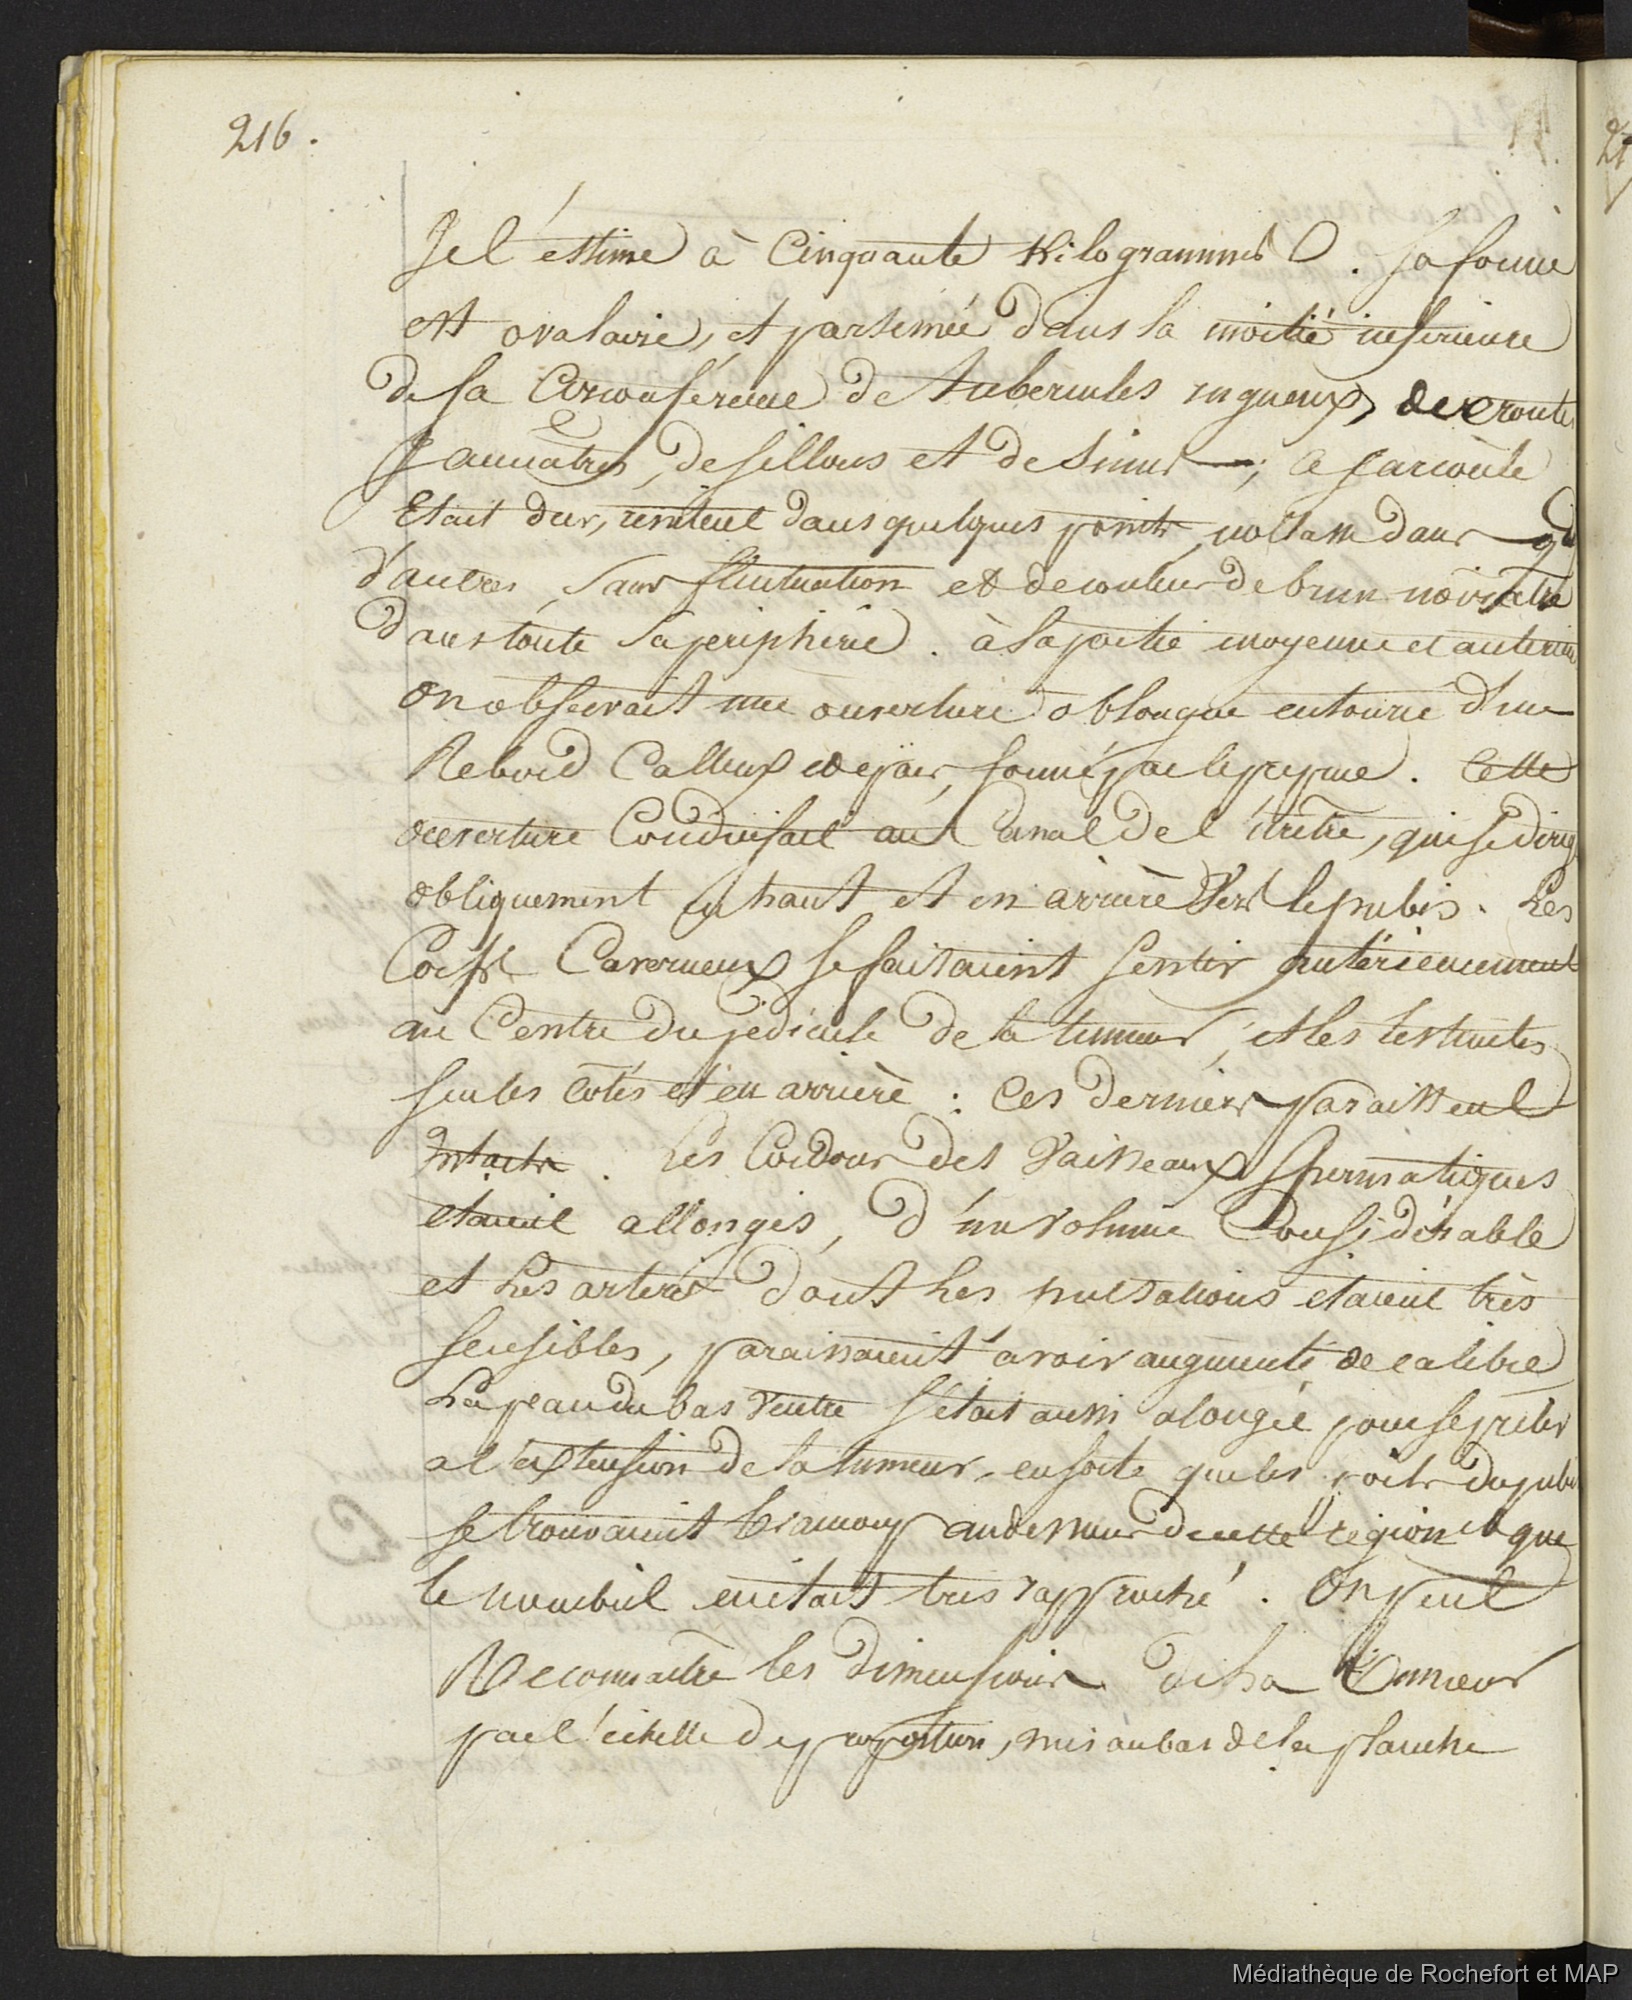 216.
Je l'estime à Cinquante Kilogrammes. Sa forme
est ovalaire, et parsemée dans la moitié inferieure
de sa Circonférence de tubercules rugueux, de croutes
Jaunâtres, de sillons et de sinus; Ce sarcocèle
Etait dur, rénitent dans quelques points, mollasse dans
d'autres, sans fluctuation et de couleur de brun noirâtre
dans toute sa periphérie. à la partie moyenne et anterieu
on observait une ouverture oblongue entourée d'un
Rebord Calleux epais, formé par le prépuce. Cette
ouverture Conduisait au Canal de l'urètre, qui se dirig
obliquement en haut et en arrière Vers le pubis. Les
Corps Caverneux se faisaient sentir antérieurement
au Centre du pédicule de la tumeur, et les testicules
sur les côtés et en arrière: Ces derniers paraissent
Intacts. Les Cordons des Vaisseaux Spermatiques
etaient allongés, d'un volume Considérable
et Les arteres dont Les pulsations etaient très
sensibles, paraissaient avoir augmenté de calibre
La peau du bas Ventre s'était aussi alongée pour se prêter
a l'extension de la tumeur, en sorte que les poils du pubis
se trouvaient beaucoup au dessous de cette région et que
le nombril en était très rapproché. On peut
Reconnaitre les dimensions de La Tumeur
par l'échelle de proportion, mis au bas de la planche
Médiathèque de Rochefort et MAP